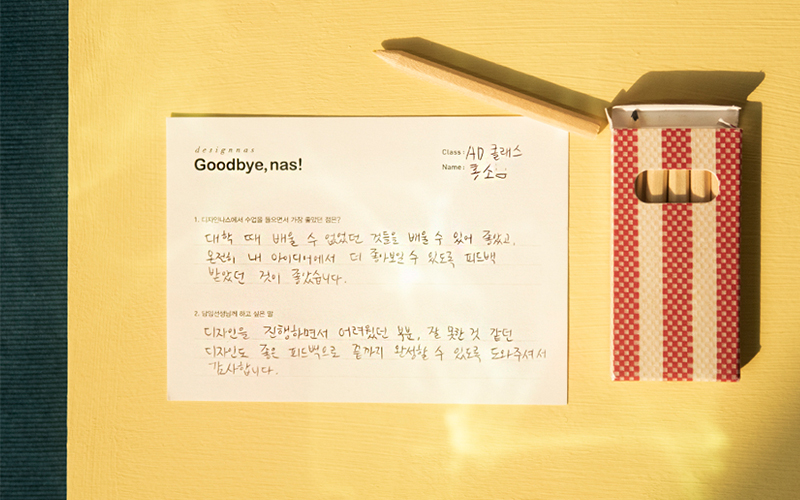 designnas
Goodbye, nas!
Class : AD 클래스
Name : 홍소임
1. 디자인나스에서 수업을 들으면서 가장 좋았던 점은?
대학 때 배울 수 없었던 것들을 배울 수 있어 좋았고,
온전히 내 아이디어에서 더 좋아보일 수 있도록 피드백
받았던 것이 좋았습니다.
2. 담임선생님께 하고 싶은 말
디자인을 진행하면서 어려웠던 부분, 잘 못한 것 같던
디자인도 좋은 피드백으로 끝까지 완성할 수 있도록 도와주셔서
감사합니다.